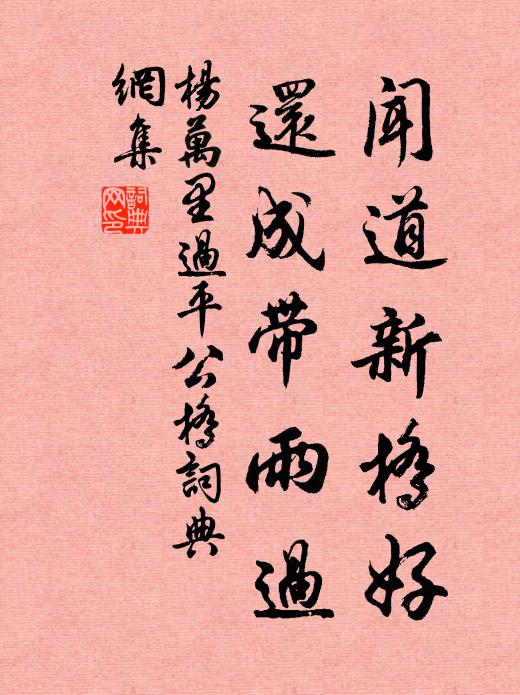 聞道新橋好
還成帶雨過
楊萬里過平公橋詞典
網集
詞典
网印